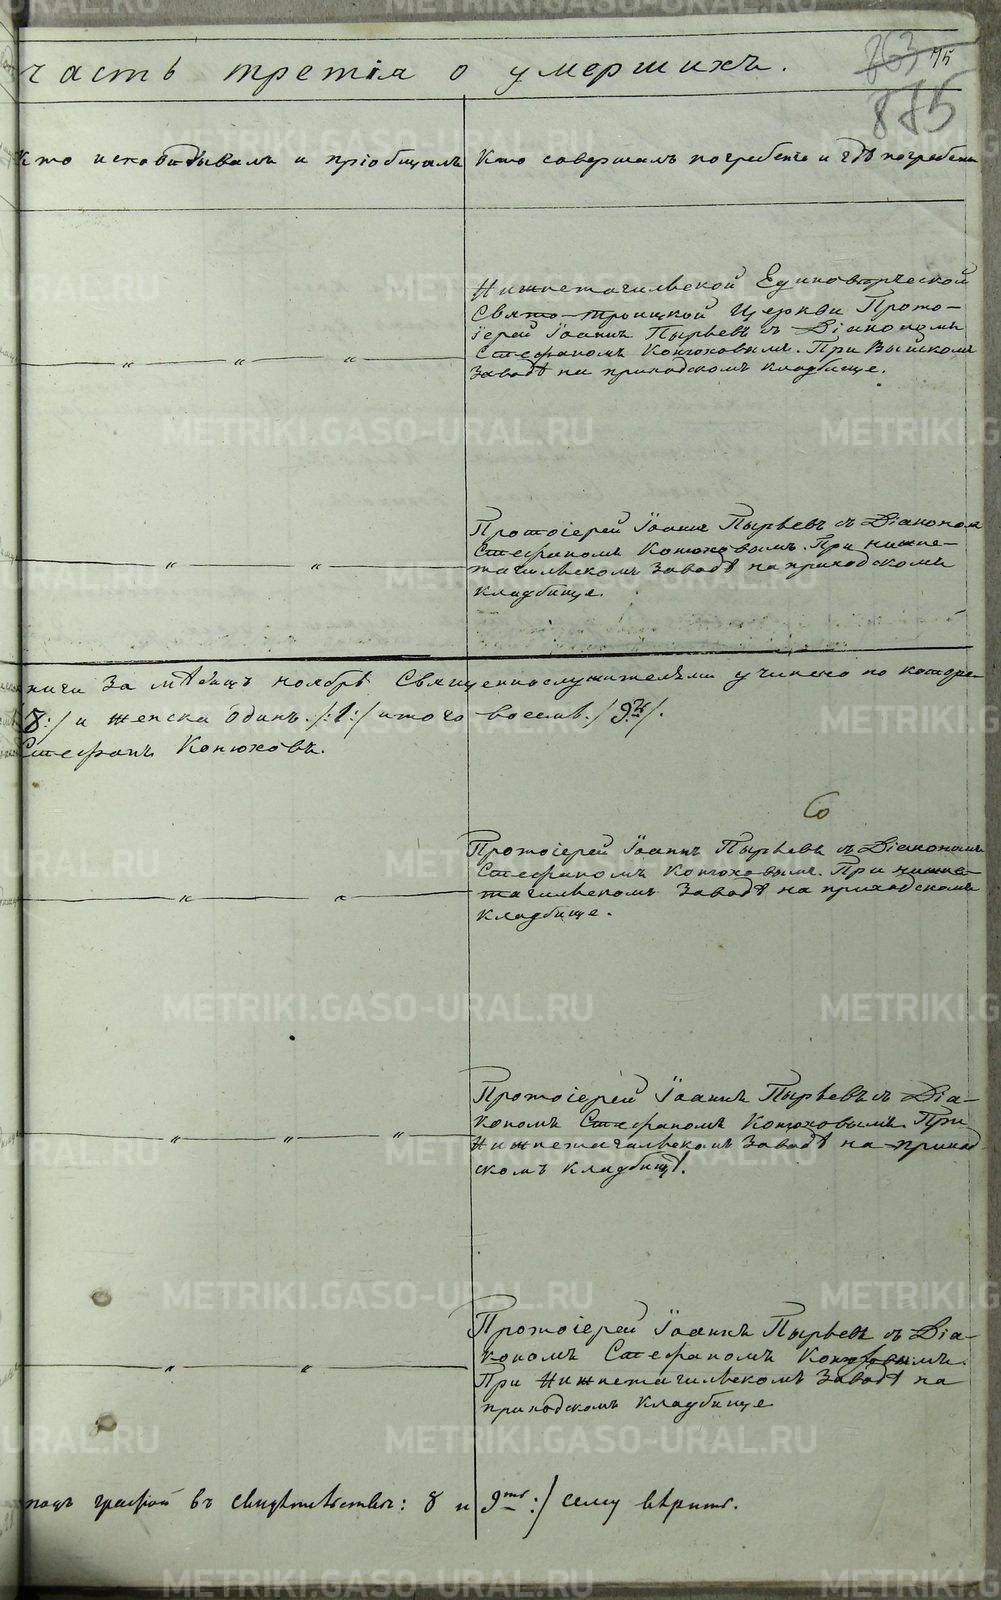 часть третія о умершихъ.
263 75
875
Кто исповѣдывалъ и пріобщалъ
Кто совершалъ погребеніе и гдѣ погребены
Нижнетагильской Единовѣрческой
Свято-Троицкой Церкви Прото-
іерей Іоаннъ Пырьевъ съ Діакономъ
Стефаномъ Конюховымъ. При Выйскомъ
Заводѣ на приходскомъ кладбище.
Протоіерей Іоаннъ Пырьевъ съ Діакономъ
Стефаномъ Конюховымъ. При Нижне-
тагильскомъ Заводѣ на приходскомъ
кладбище.
ниги за мѣсяцъ ноябрь Священнослужителями учинено по которе-
8:/ и женска одинъ /:1:/ итого восемь /9ть/.
Стефанъ Конюховъ.
Протоіерей Іоаннъ Пырьевъ съ Діакономъ
Стефаномъ Конюховымъ. При Нижне-
тагильскомъ Заводѣ на приходскомъ
кладбище.
Протоіерей Іоаннъ Пырьевъ съ Діа-
кономъ Стефаномъ Конюховымъ. При
Нижнетагильскомъ Заводѣ на приход
скомъ кладбищѣ.
Протоіерей Іоаннъ Пырьевъ съ Діа-
кономъ Стефаномъ Конюховымъ.
При Нижнетагильскомъ Заводѣ на
приходскомъ кладбище
подъ графой въ : 8 и 9ть:/ сему вѣрить.
METRIKI.GASO-URAL.RU